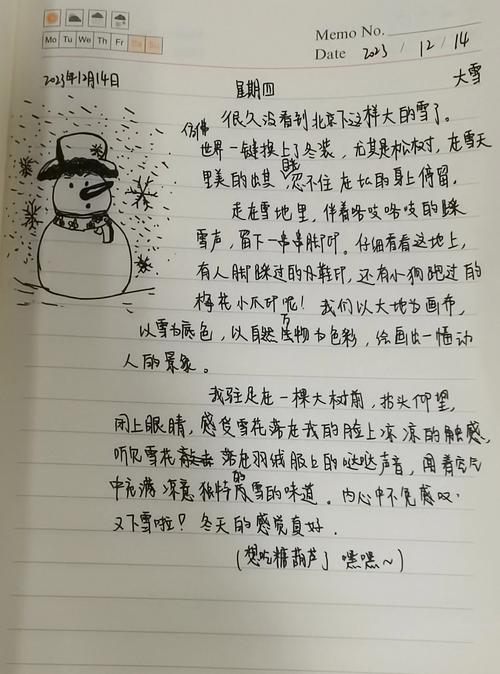 Memo No.
Mo Tu We Th Fr Sa Su
Date 2023 / 12 / 14
2023年12月14日 星期四 大雪
很久没看到北京下这样大的雪了。
仿佛
世界一键换上了冬装，尤其是松柏树，在雪天
里美的出其，忍不住在它的身上停留。
走在雪地里，伴着咯吱咯吱的踩
雪声，留下一串串脚印。仔细看看这地上，
有人脚踩过的鞋印，还有小狗跑过的
梅花小爪印呢！我们以大地为画布，
以雪为底色，以自然万物为色彩，绘画出一幅动
人的景象。
我驻足在一棵大树前，抬头仰望，
闭上眼睛，感受雪花落在我的脸上凉凉的触感，
听见雪花落在羽绒服上的哒哒声音，闻着空气
中充满凉意独特的雪的味道。内心中不免感叹：
又下雪啦！冬天的感觉真好.
(想吃糖葫芦了 嘿嘿~)